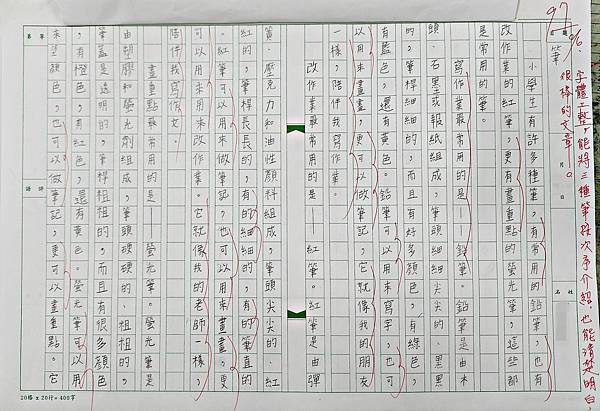 97
96. 字體工整，能將三種筆依次予介紹，也能清楚明白，
很棒的文章。
題目
月
日
姓名
筆
小學生有許多種筆，有常用的鉛筆，也有
改作業的紅筆，更有畫重點的螢光筆，這些都
是常用的筆。
寫作業最常用的是——鉛筆。鉛筆是由木
頭、石墨或報紙組成，筆頭細細尖尖的、黑黑
的，筆桿細細的，而且有好多顏色，有綠色，
有藍色，還有黃色。鉛筆可以用來寫字，也可
以用來畫畫，更可以做筆記，它就像我的朋友
一樣，陪伴我寫作業。
改作業最常用的是——紅筆。紅筆是由彈
簧、壓克力和油性顏料組成，筆頭尖尖的、紅
紅的，筆桿長長的，有的細細的，有的筆直的
。紅筆可以用來做筆記，也可以用來畫畫，更
可以用來改作業。它就像我的老師一樣，
陪伴我寫作文。
畫重點最常用的是——螢光筆。螢光筆是
由塑膠和螢光劑組成，筆頭硬硬的、粗粗的，
筆是透明，筆桿粗粗的，而且有很多顏色
有橙色，有紅色，還有黃色。螢光筆可以用
來塗顏色，也可以做筆記，更可以畫重點。它
20格 x 20行 = 400字